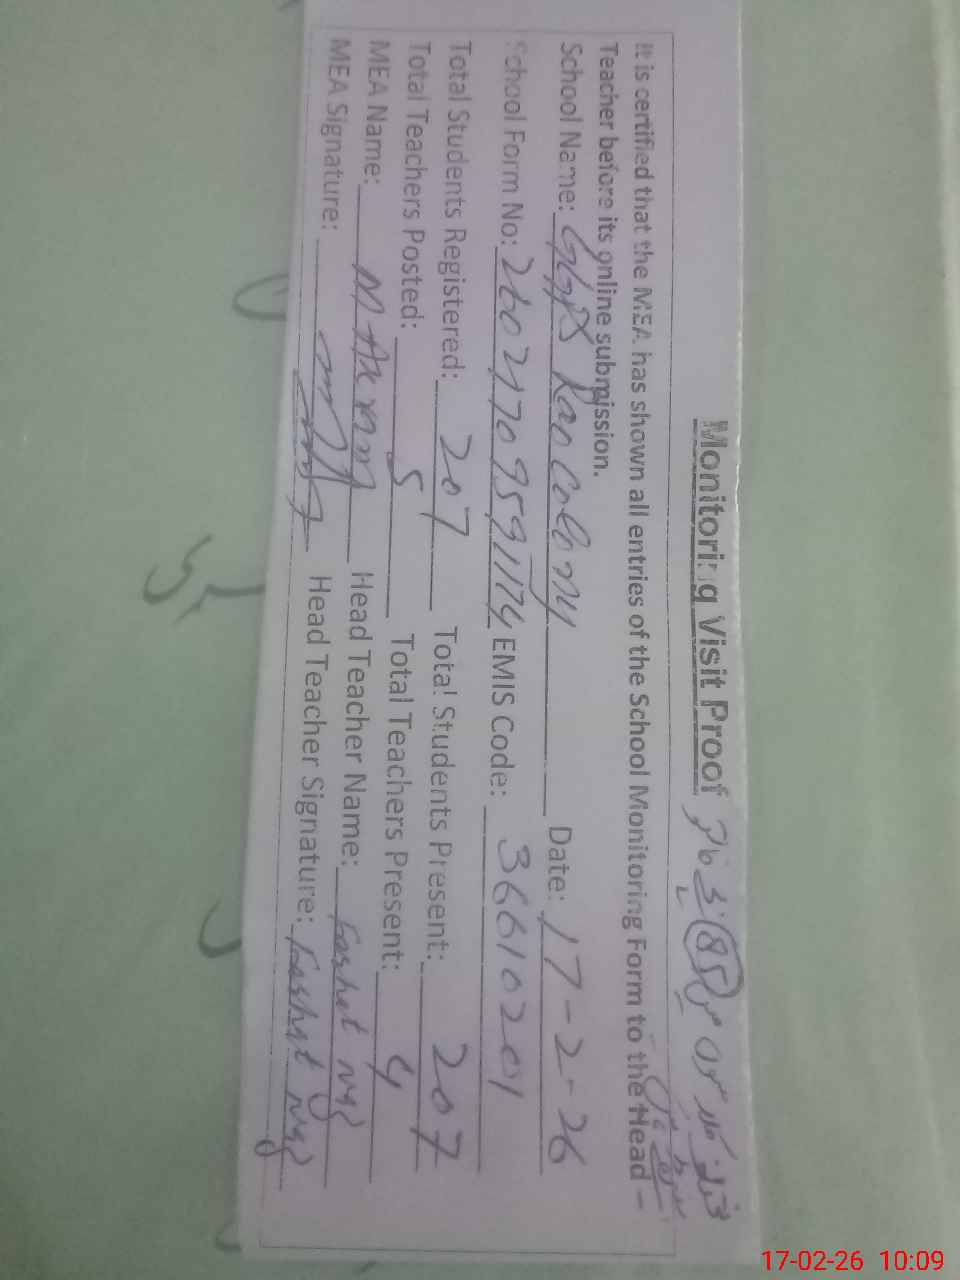 Monitoring Visit Proof
It is certified that the MEA has shown all entries of the School Monitoring Form to the Head
Teacher before its online submission.
School Name: GGPS Rao Colony Date: 17-2-26
School Form No: EMIS Code: 36610201
Total Students Registered: 207 Total Students Present: 207
Total Teachers Posted: 5 Total Teachers Present: 4
MEA Name: M Akram Head Teacher Name:
MEA Signature: Head Teacher Signature:
17-02-26 10:09